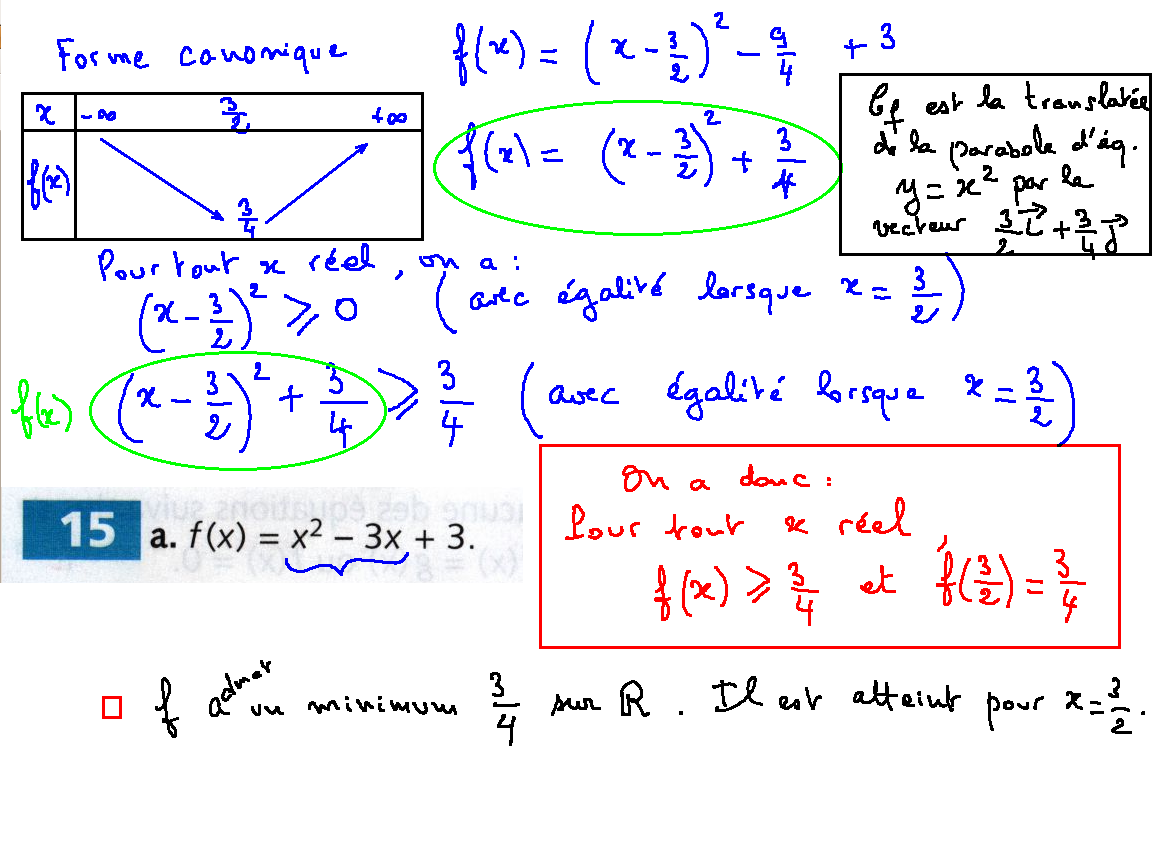 Forme canonique f(x) = (x - 3/2)² - 9/4 + 3
x -∞ 3/2 +∞
f(x) 3/4
f(x) = (x - 3/2)² + 3/4
Cf est la translatée
de la parabole d'éq.
y = x² par le
vecteur 3/2 i⃗ + 3/4 j⃗
Pour tout x réel, on a :
(x - 3/2)² ⩾ 0 (avec égalité lorsque x = 3/2)
f(x) (x - 3/2)² + 3/4 ⩾ 3/4 (avec égalité lorsque x = 3/2)
15 a. f(x) = x² – 3x + 3.
On a donc :
Pour tout x réel,
f(x) ⩾ 3/4 et f(3/2) = 3/4
f admet un minimum 3/4 sur ℝ. Il est atteint pour x = 3/2.